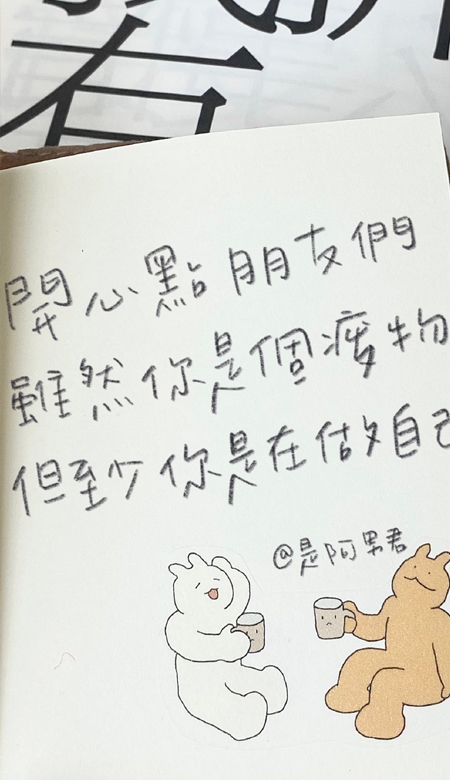 看
開心點朋友們
雖然你是個廢物
但至少你是在做自己
@是阿男君